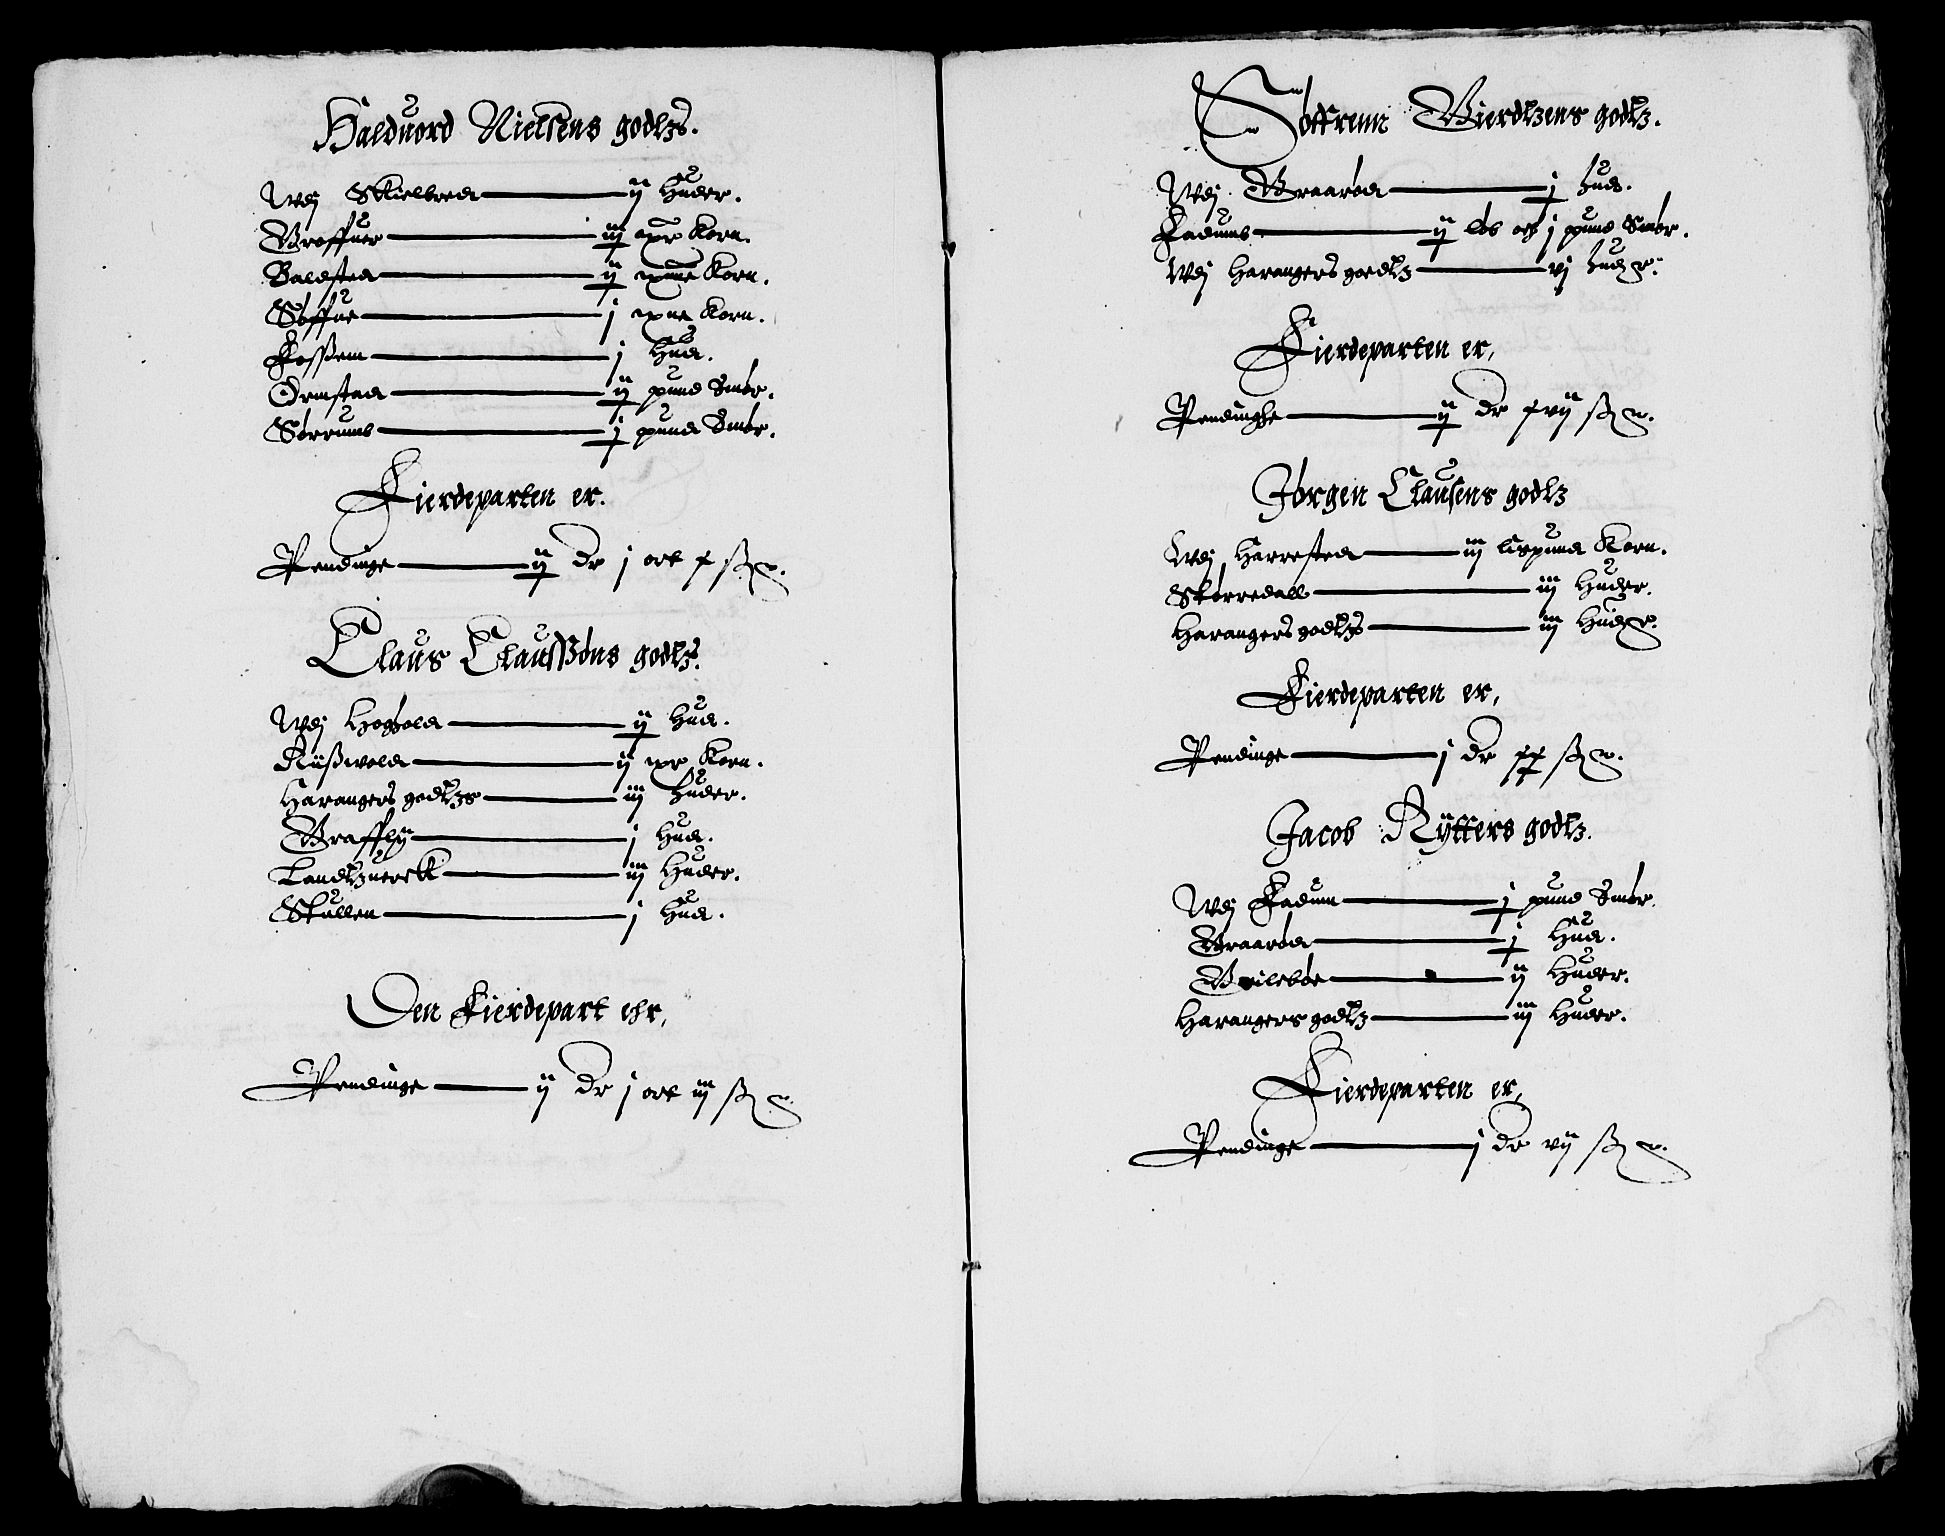 Halduord Nielsens godtzs.
Wdj Skielbred ij Huder.
Broffuer iij mr Korn.
Baldsted ij mme Korn.
Søffue j mne Korn.
Fossem j Hud.
Ormstad ij pund Smør.
Sørrumb j pund Smør.
Fierdeparten er.
Pendinge ij dr j ort x ß
Claus Claussøns godtz.
Wdj Hogsold ij Hud.
Rüswold ij mr Korn.
Harangers godtzs iij Huder.
Graffly j Hud.
Landtzuerck iij Huder.
Skullen j Hud.
Den Fierdepart ehr,
Pendinge ij dr j ort iij ß
Søffrenn Gierdtzens godtz.
Wdj Graarød j Hud.
Fadumb ij lob och j pund Smør.
Wdj Harangers goedtz vj Huder.
Fierdeparten er,
Pendinghe ij dr xvij ß
Jørgen Clausens godtz
Wdj Harrested iij lispund Korn.
Skorredall iij Huder.
Harangers godtzs iij Huder.
Fierdeparten er,
Pendinge j dr xx ß
Jacob Rytters godtz.
Wdj Fadum j pund Smør.
Graarød j Hud.
Beilebøe ij Huder.
Harangers godtz iij Huder.
Fierdeparten er,
Pendinge j dr vij ß